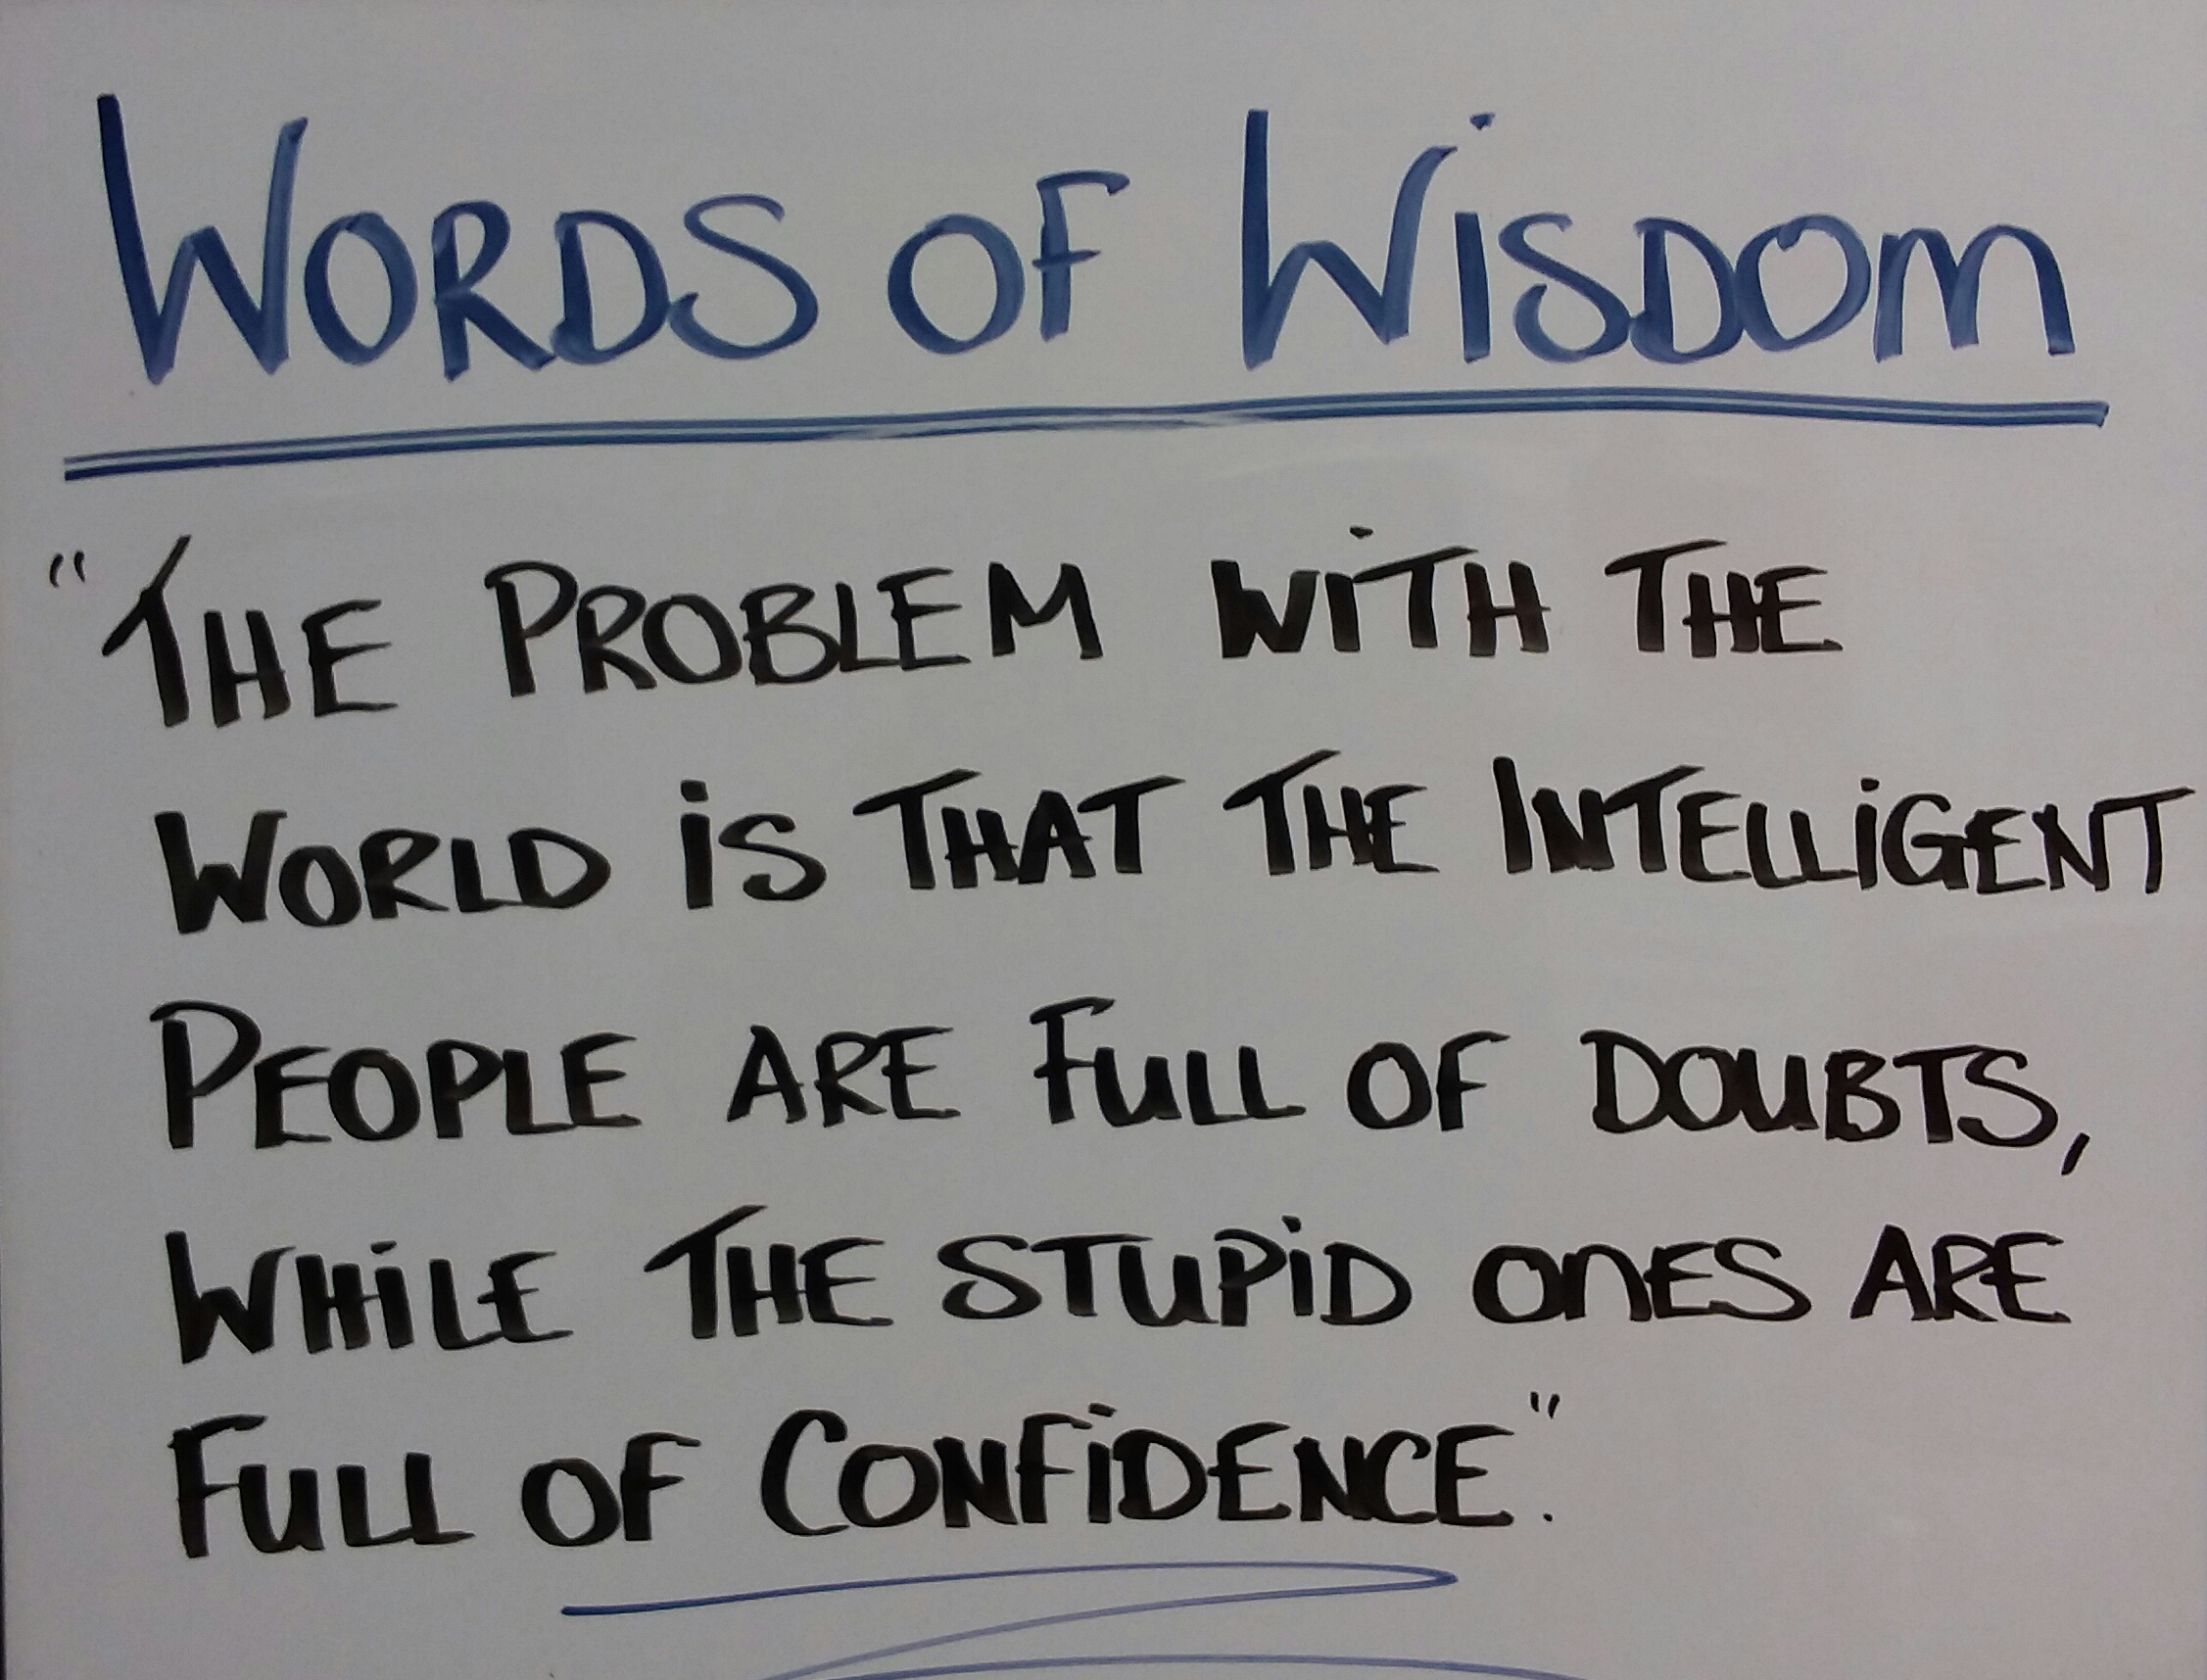 WORDS OF WISDOM
"THE PROBLEM WITH THE
WORLD IS THAT THE INTELLIGENT
PEOPLE ARE FULL OF DOUBTS,
WHILE THE STUPID ONES ARE
FULL OF CONFIDENCE".